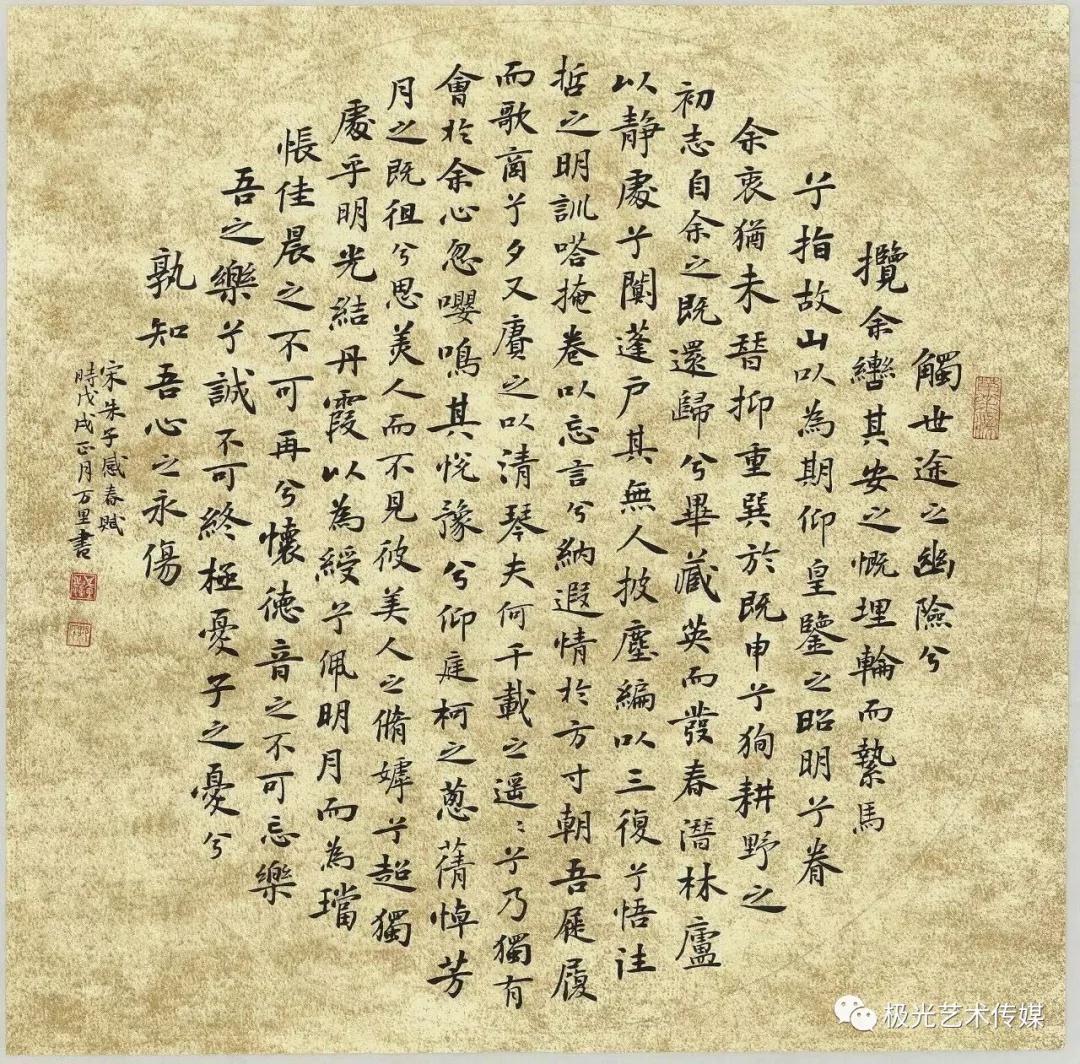 觸世途之幽險兮
攬余轡其安之慨埋輪而縶馬
兮指故山以為期仰皇鑒之昭明兮眷
余衷猶未替抑重巽於既申兮狥耕野之
初志自余之既還歸兮畢藏英而發春潛林廬
以靜處兮闃蓬户其無人披塵編以三復兮悟往
哲之明訓嗒掩卷以忘言兮納遐情於方寸朝吾屣履
而歌商兮夕又賡之以清琴夫何千載之遥〻兮乃獨有
會於余心忽嚶鳴其悅豫兮仰庭柯之蔥蒨悼芳
月之既徂兮思美人而不見彼美人之脩嫭兮超獨
處乎明光結丹霞以為綬兮佩明月而為璫
悵佳晨之不可再兮懷德音之不可忘樂
吾之樂兮誠不可終極憂子之憂兮
孰知吾心之永傷
宋朱子感春賦
時戊戌正月万里書
极光艺术传媒